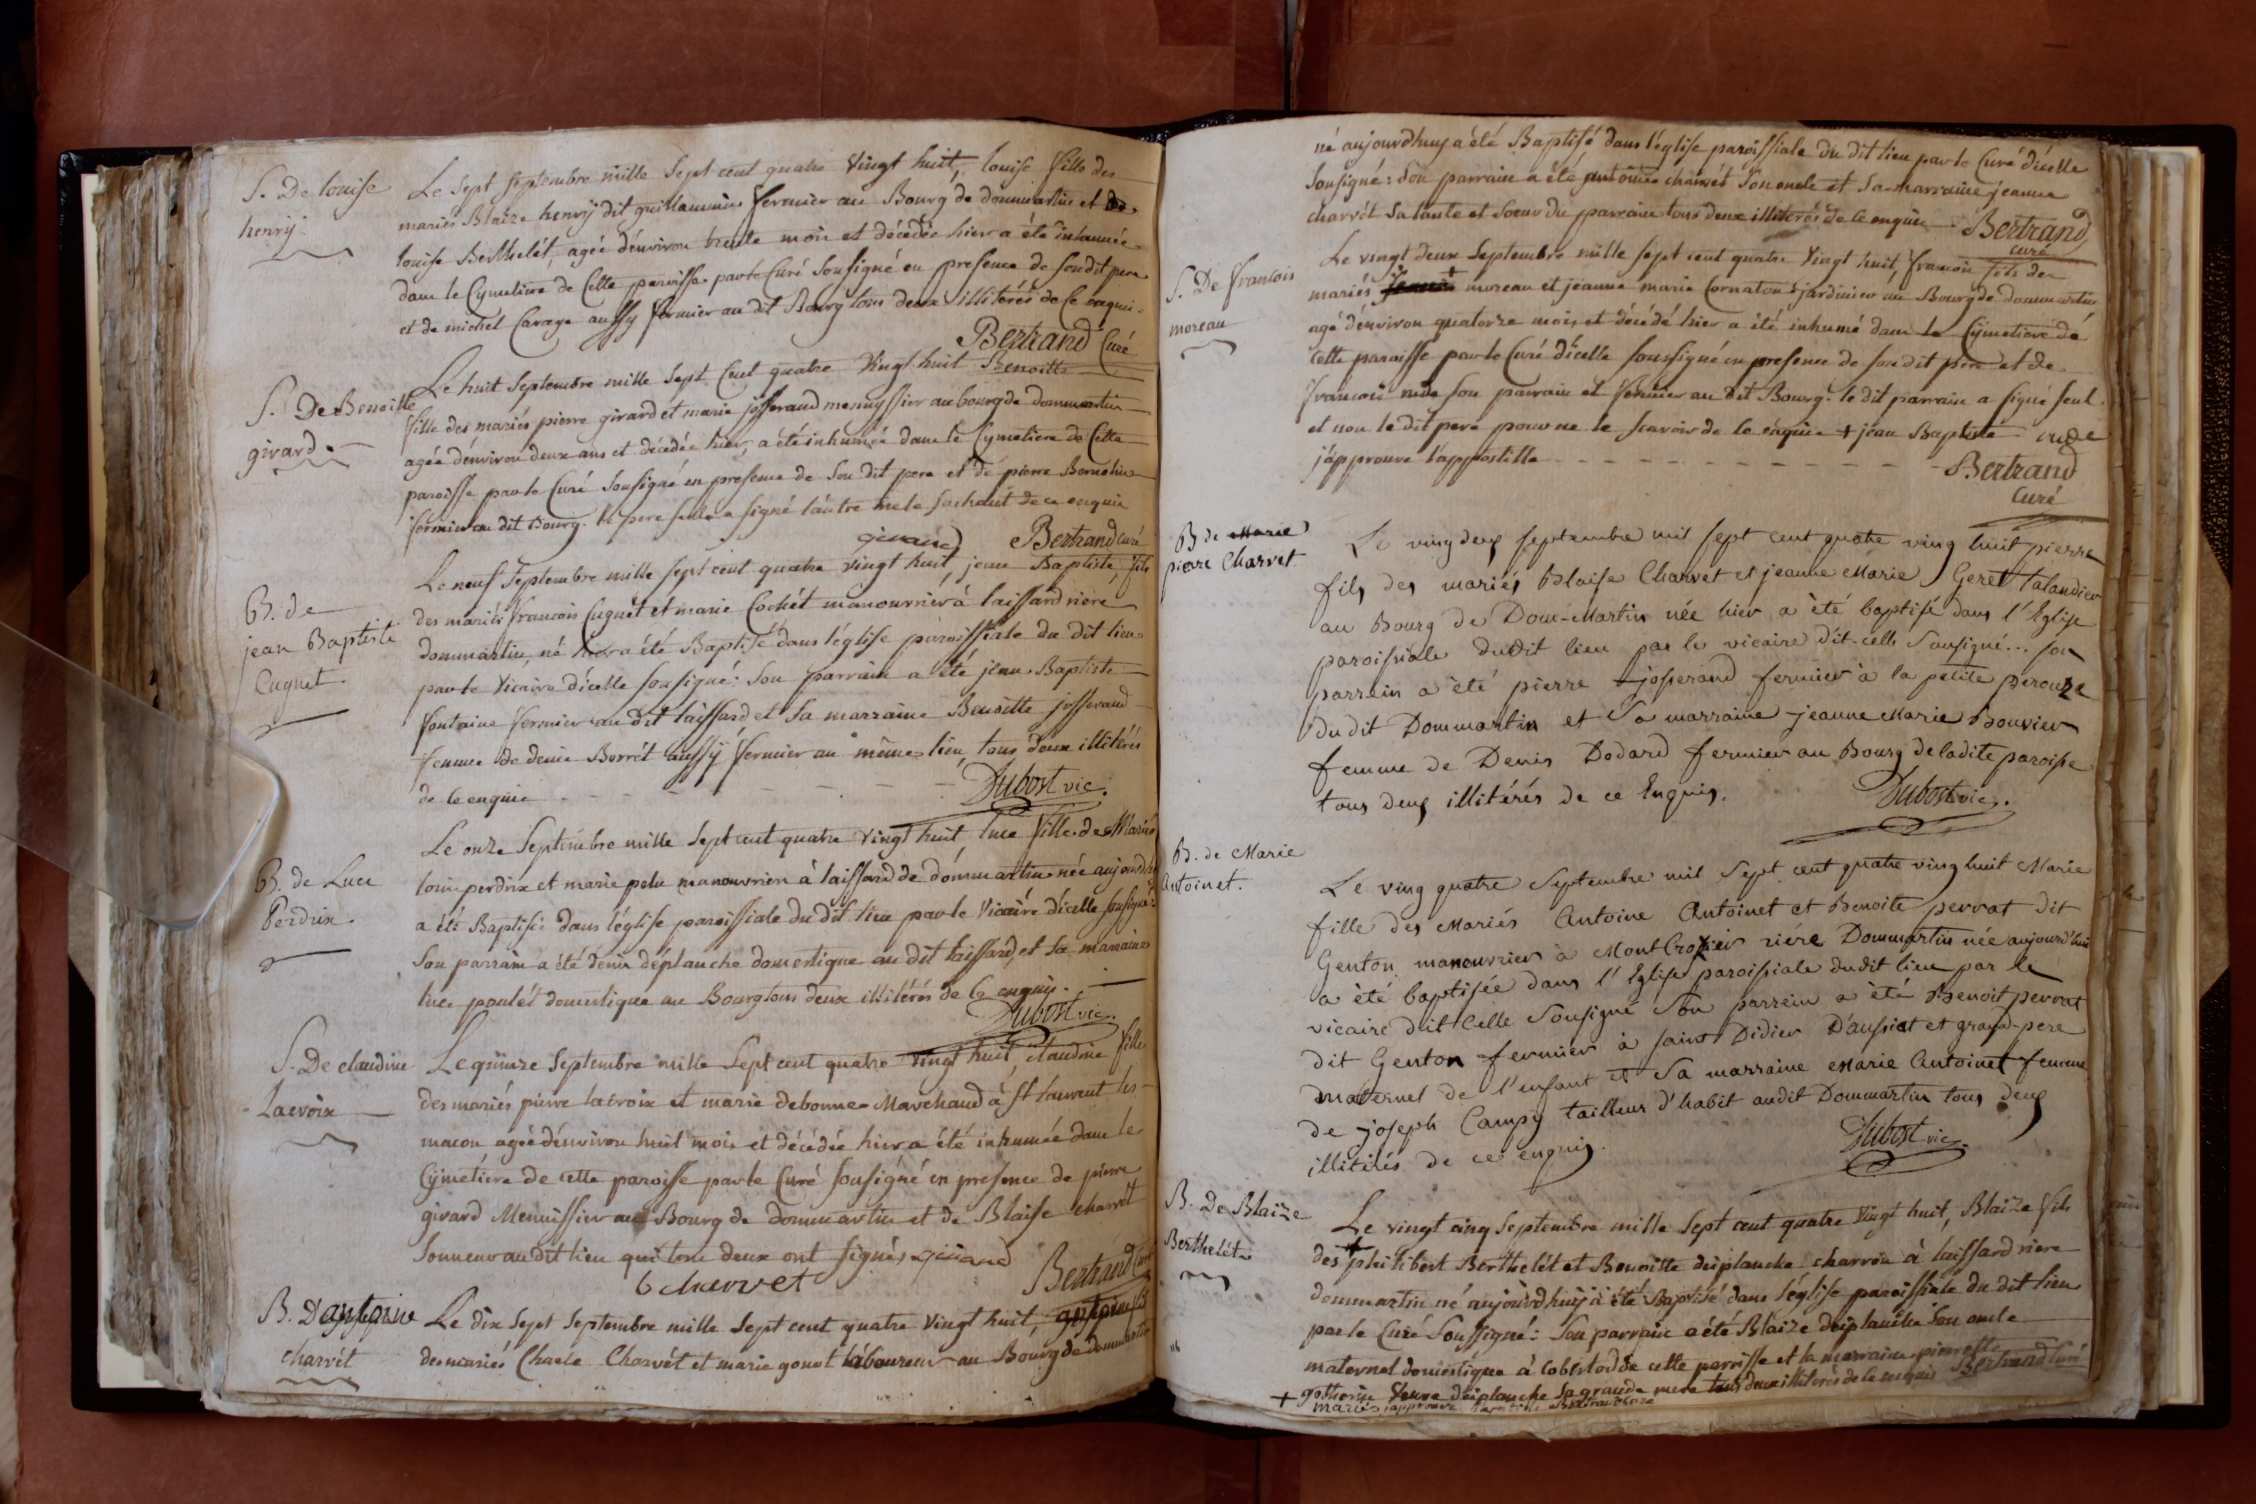 S. De louise
henrÿ.
Le sept septembre mille sept cent quatre vingt huit, louise fille des
mariés Blaize henrÿ dit guillaumin fermier au Bourg de dommartin et de
louise Berthelét, agée d'énviron trente mois et décédée hier a été inhumée
dans le Cÿmetiere de Cette paroisse par le Curé sousigné en presence de son dit pere
et de michel Carage aussÿ fermier au dit Bourg tous deux illitérés de Ce enquis.
Bertrand Curé
S. De Benoitte
girard.
Le huit septembre mille sept Cent quatre vingt huit Benoitte
fille des mariés pierre girard et marie josserand menuyssier au bourg de dommartin
agée d'énviron deux ans et décédée hier, a été inhumée dans le Cymetiere de Cette
paroisse par le Curé sousigné en presence de son dit pere et de pierre
fermier au dit Bourg. le pere seul a signé l'autre ne le sachant de ce enquis
girard Bertrand curé
B. de
jean Baptiste
Cuguet.
Le neuf septembre mille sept cent quatre vingt huit, jean Baptiste, fils
des mariés francois Cuguét et marie Cochét manouvrier à laissard riere
dommartin, né hier a été Baptisé dans l'église paroissiale du dit lieu
par le Vicaire d'icelle sousigné: son parrain a été jean Baptiste
fontaine fermier au dit laissard et sa marraine Benoitte josserand
femme de denis Borrét aussÿ fermier au même lieu, tous deux illitérés
de ce enquis - - - - - - Dubost vic.
B. de Luce
Perdrix.
Le onze septembre mille sept cent quatre vingt huit, luce fille des Mariés
louis perdrix et marie pelu manouvrier à laissard de dommartin née aujourd'h
a été Baptisée dans l'église paroissiale du dit lieu par le Vicaire d'icelle sousigné:
son parrain a été denis déplanche domestique au dit laissard, et sa marraine
luce poulét domestique au Bourg tous deux illitérés de Ce enquis.
Dubost vic.
S. De claudine
Lacroix
Le quinze septembre mille sept cent quatre vingt huit, claudine fille
des mariés pierre lacroix et marie debonne Marchand à st laurent les
macon agée d'énviron huit mois et décédée hier a été inhumée dans le
Cÿmetiere de cette paroisse par le Curé sousigné en presence de pierre
girard Menuissier au Bourg de dommartin et de Blaise charvét
sonneur au dit lieu qui tous deux ont signés girard
b charvet Bertrand Curé
B. D'antoine
charvét
Le dix sept septembre mille sept cent quatre vingt huit, antoine fils
des mariés Charle Charvét et marie gonot laboureur au Bourg de dommartin
né aujourdhuy a été Baptisé dans l'église paroissiale du dit lieu par le Curé d'icelle
sousigné: son parrain a été antoine charvét son oncle et sa marraine jeanne
charvét sa tante et soeur du parrain tous deux illiterés de ce enquis Bertrand
curé
S. De francois
moreau
Le vingt deux septembre mille sept cent quatre vingt huit, francois fils des
mariés + moreau et jeanne marie Cornaton jardinier au Bourg de dommartin
agé d'énviron quatorze mois, et décédé hier a été inhumé dans le Cÿmetiere de
cette paroisse par le Curé d'icelle soussigné en presence de son dit pere et de
francois nude son parrain et fermier au dit Bourg: le dit parrain a signé seul
et non le dit pere pour ne le scavoir de ce enquis + jean Baptiste nude
j'approuve l'appostille - - - - - - - Bertrand
Curé
B de Marie
pierre Charvet
Le ving deux septembre mil sept cent quatre ving huit pierre
fils des mariés Blaise Charvet et jeanne Marie Geret talandier
au Bourg de Dom-Martin née hier a été baptisé dans l'Eglise
paroissiale dudit lieu par le vicaire d'it-celle sousigné... son
parrain a été pierre josserand fermier à la petite perouze
du dit Dommartin et sa marraine jeanne Marie Bouvier
femme de Denis Dodard fermier au Bourg de ladite paroisse
tous deux illitérés de ce Enquis. Dubost vic.
B. de Marie
Antoinet.
Le ving quatre septembre mil sept cent quatre ving huit Marie
fille des Mariés Antoine Antoinet et Benoite perrat dit
Genton manouvrier à MontCrozier riére Dommartin née aujourd'hui
a été baptisée dans l'Eglise paroissiale dudit lieu par le
vicaire d'it celle sousigné son parrein a été Benoit perrat
dit Genton fermier à saint Didier D'aussiat et grand-pere
maternel de l'enfant et sa marraine Marie Antoinet femme
de joseph Campy tailleur d'habit audit Dommartin tous deux
illitérés de ce enquis. Dubost vic.
B. De Blaize
Berthelét
Le vingt cinq septembre mille sept cent quatre vingt huit, Blaize fils
des + philibert Berthelét et Benoitte deiplanche charron à laissard riere
dommartin né aujourdhuy a été Baptisé dans l'église paroissiale du dit lieu
par le Curé soussigné: son parrain a été Blaize deiplanche son oncle
maternel domestique à de cette parroisse et la marraine pierrette
veuve deiplanche sa grande mere tous deux illiterés de ce enquis Bertrand Curé
+ mariés j'approuve